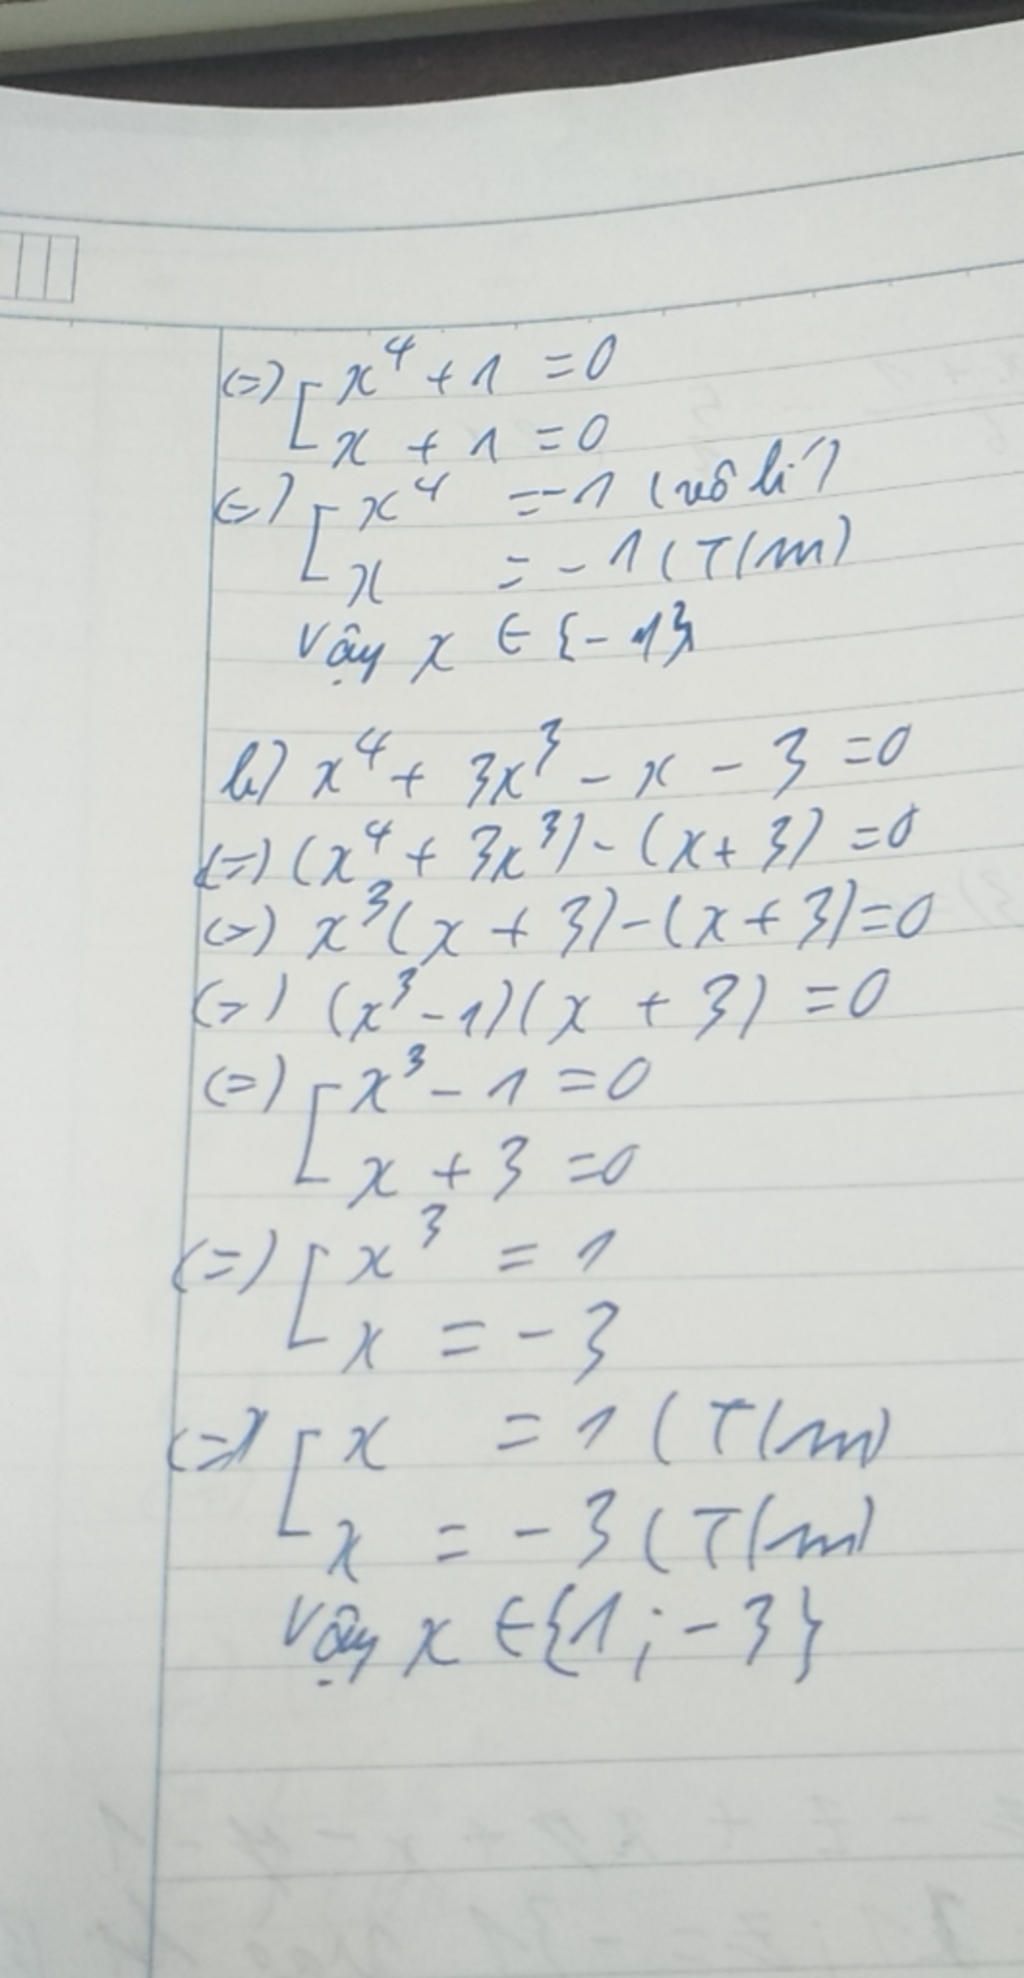 (=) [ x⁴ + 1 = 0
x + 1 = 0
(=) [ x⁴ = -1 (vô lí)
x = -1 (T/m)
Vậy x ∈ {-1}
b) x⁴ + 3x³ - x - 3 = 0
(=) (x⁴ + 3x³) - (x + 3) = 0
(=) x³(x + 3) - (x + 3) = 0
(=) (x³ - 1)(x + 3) = 0
(=) [ x³ - 1 = 0
x + 3 = 0
(=) [ x³ = 1
x = -3
(=) [ x = 1 (T/m)
x = -3 (T/m)
Vậy x ∈ {1; -3}